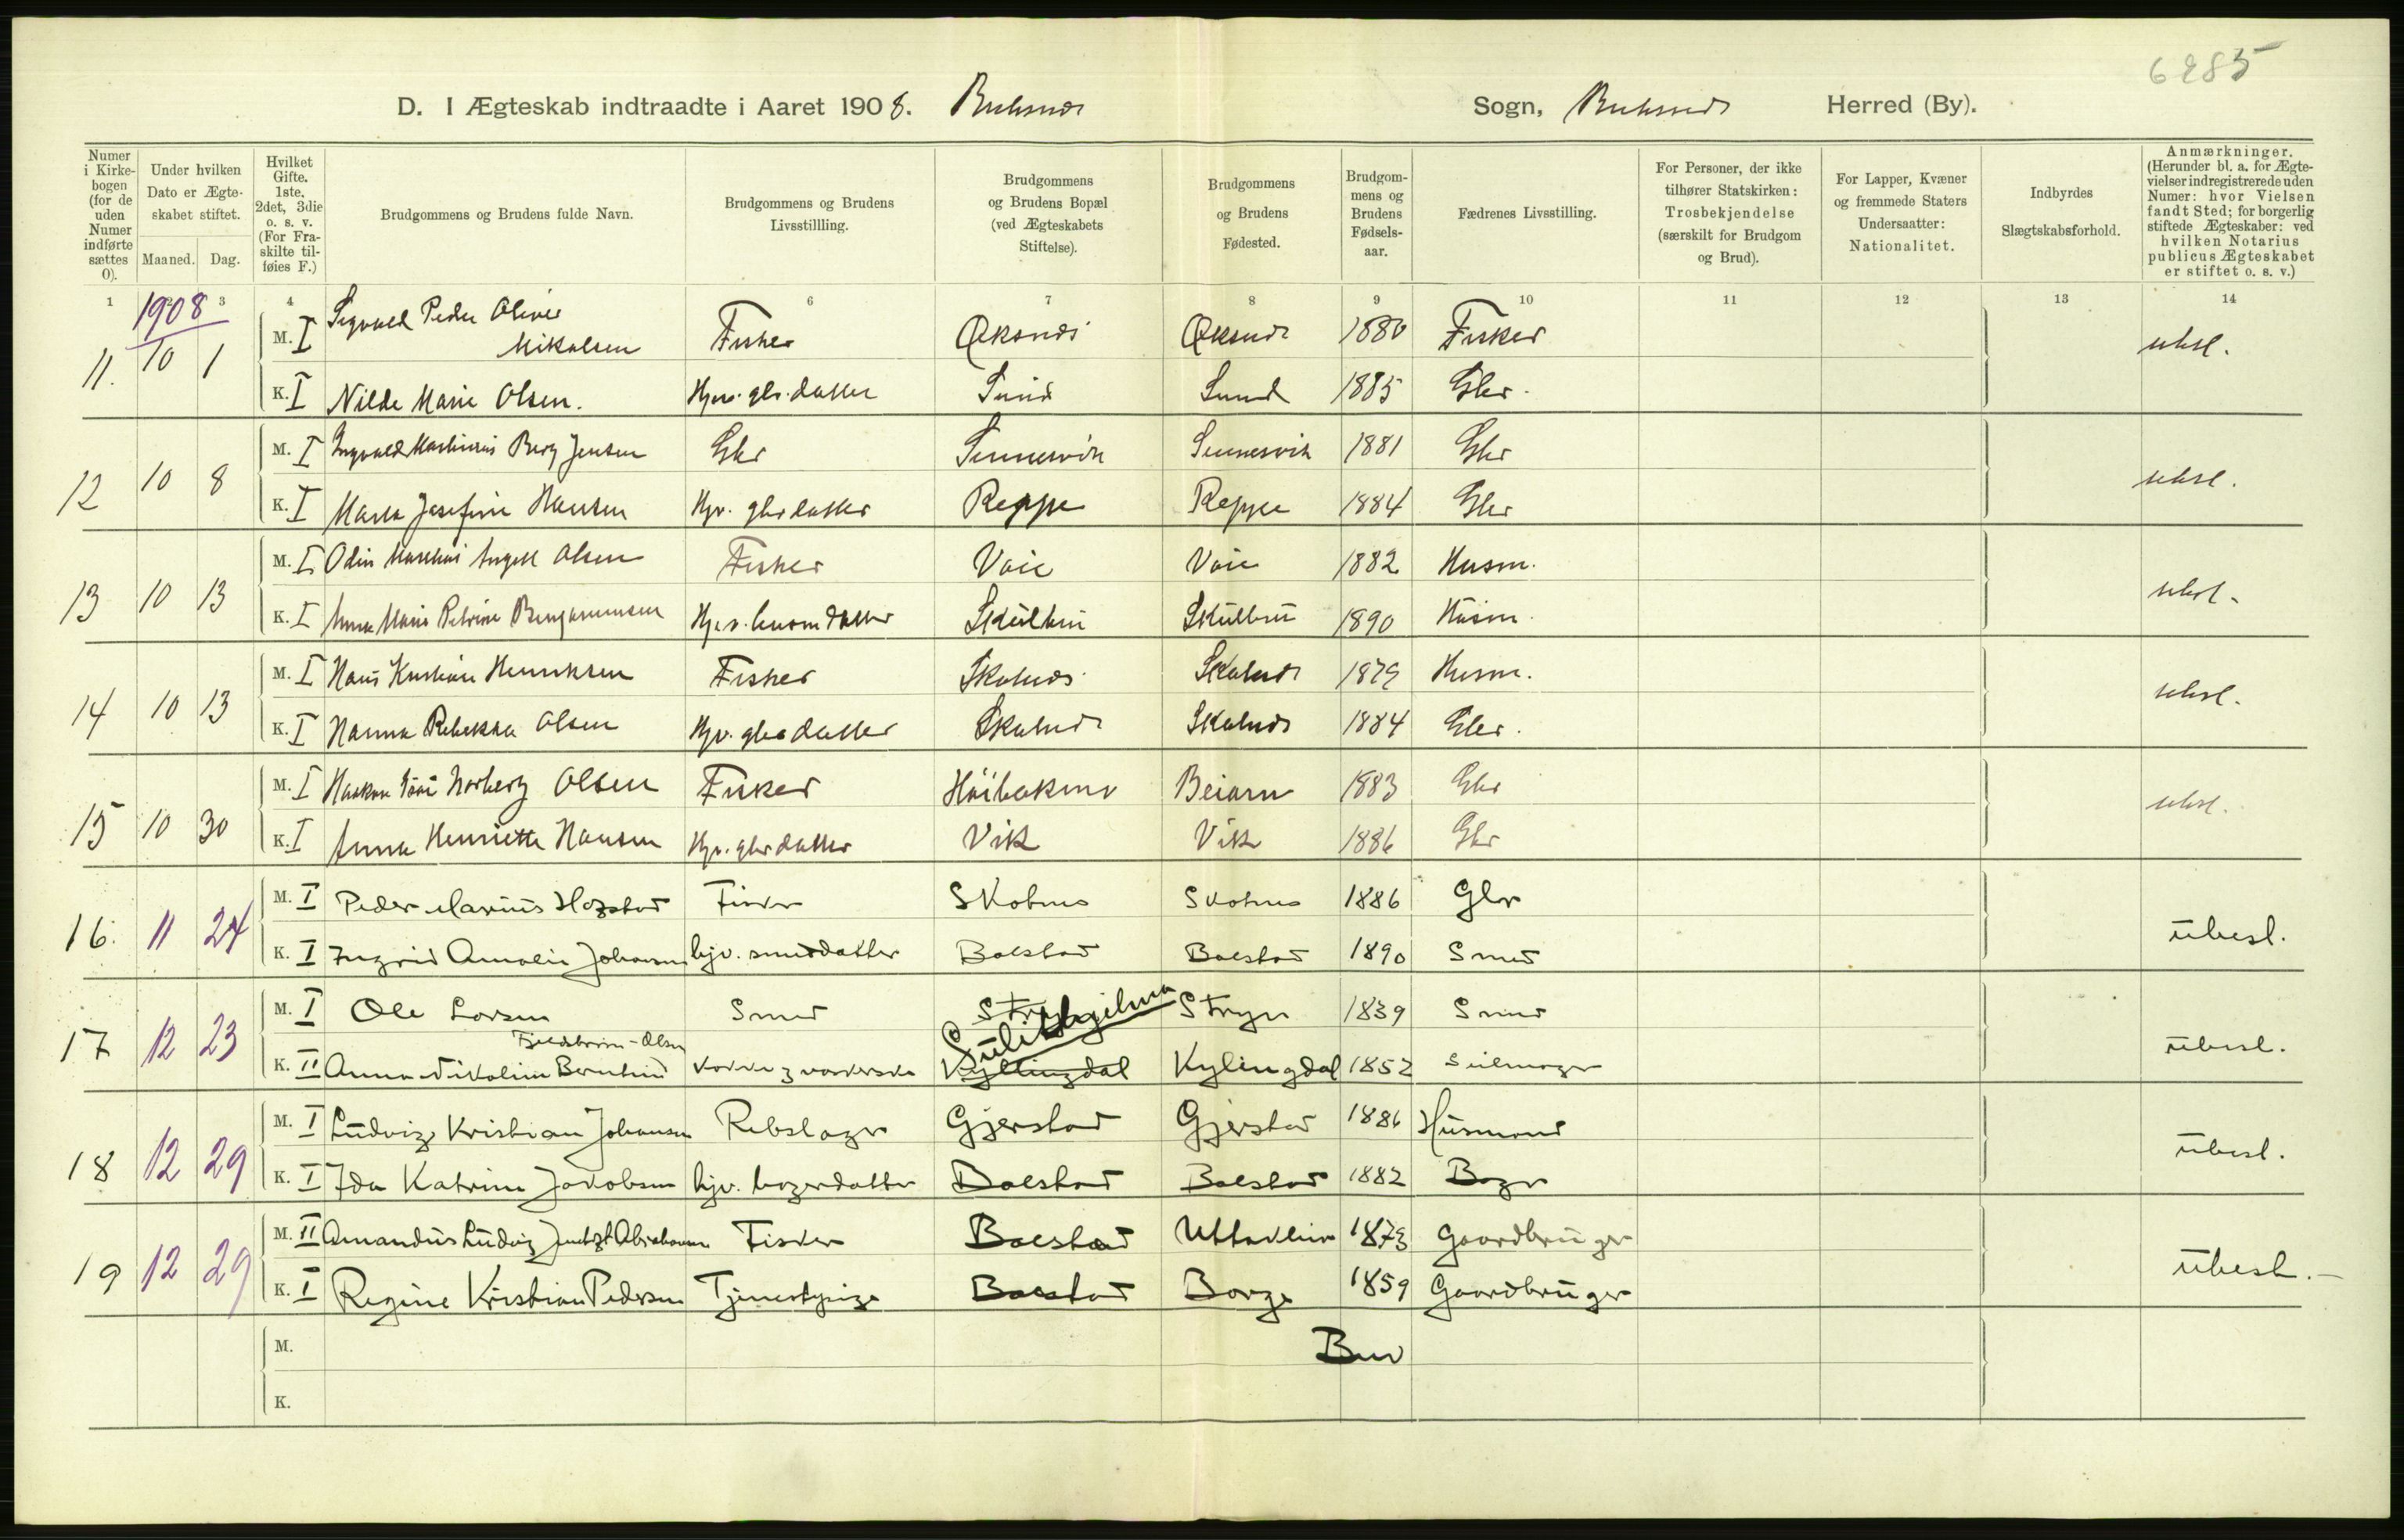 6285
D. I Ægteskab indtraadte i Aaret 1908. Buksnes Sogn, Buksnes Herred (By).
Numer i Kirkebogen (for de uden Numer indførte sættes 0).
Under hvilken Dato er Ægteskabet stiftet.
Maaned. Dag.
Hvilket Gifte. 1ste, 2det, 3die o. s. v. (For Fraskilte tilføies F.)
Brudgommens og Brudens fulde Navn.
Brudgommens og Brudens Livsstillling.
Brudgommens og Brudens Bopæl (ved Ægteskabets Stiftelse).
Brudgommens og Brudens Fødested.
Brudgommens og Brudens Fødselsaar.
Fædrenes Livsstilling.
For Personer, der ikke tilhører Statskirken: Trosbekjendelse (særskilt for Brudgom og Brud).
For Lapper, Kvæner og fremmede Staters Undersaatter: Nationalitet.
Indbyrdes Slægtskabsforhold.
Anmærkninger. (Herunder bl. a. for Ægtevielser indregistrerede uden Numer: hvor Vielsen fandt Sted; for borgerlig stiftede Ægteskaber: ved hvilken Notarius publicus Ægteskabet er stiftet o. s. v.)
1 2 3 4 6 7 8 9 10 11 12 13 14
1908
11. 10 1 M. I Sigvald Peder Oliver
Mikalsen Fisker Øksnes Øksnes 1880 Fisker ubesl.
K. I Nilde Marie Olsen. Hjv. gbr. datter Sund Sund 1885 Gbr.
12 10 8 M. I Ingvald Martinius Berg Jensen Gbr Sennesvik Sennesvik 1881 Gbr ubesl.
K. I Maria Josefine Hansen Hjv. gbrdatter Reppe Reppe 1884 Gbr
13 10 13 M. I Odin Olsen Fisker Voie Voie 1882 Husm. ubesl.
K. I Anna Marie Petrine Benjaminsen Hjv. husmdatter Skulbru Skulbru 1890 Husm.
14 10 13 M. I Hans Kristian Henriksen Fisker Skotnes Skotnes 1879 Husm. ubesl.
K. I Hanna Rebekka Olsen Hjv. gbrdatter Skotnes Skotnes 1884 Gbr.
15 10 30 M. I Haakon Norberg Olsen Fisker Höibakmo Beiarn 1883 Gbr ubesl.
K. I Anna Henriette Hansen Hjv. gbrdatter Vik Vik 1886 Gbr
16. 11 24 M. I Peder Marius Hogstad Fisker Skotnes Skotnes 1886 Gbr ubesl.
K. I Ingrid Amalie Johansen hjv. smeddatter Bolstad Bolstad 1890 Smed
17 12 23 M. I Ole Larsen Smed Stryn Stryn 1839 Smed ubesl.
Sulitjelma
Olsen
K. II Anna Nikoline Bernhard Kokke og vaskerske Kyllingdal Kylingdal 1852 Seilmager
18 12 29 M. I Ludvig Kristian Johansen Rebslager Gjerstad Gjerstad 1886 Husmand ubesl.
K. I Ida Katrine Jakobsen hjv. bagerdatter Bolstad Bolstad 1882 Bager
19 12 29 M. II Amandus Ludvig Abrahamsen Fisker Bolstad Uttakleiv 1873 Gaardbruger ubesl.
K. I Regine Kristian Pedersen Tjenestepige Bolstad Borge 1859 Gaardbruger
M.
K.